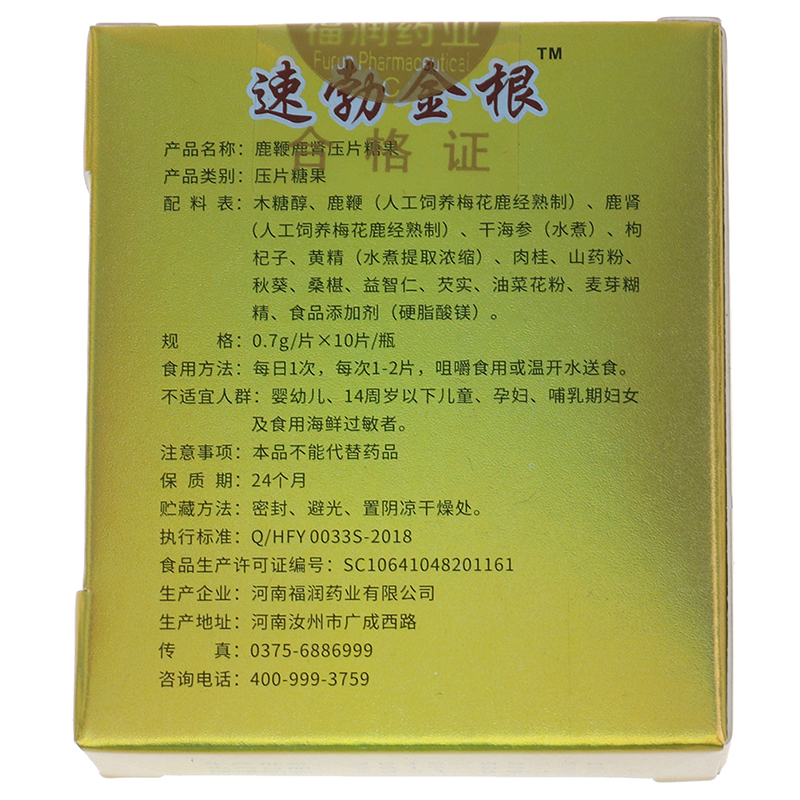 福润药业
Furun Pharmaceutical
速勃金根™
合格证
产品名称：鹿鞭鹿肾压片糖果
产品类别：压片糖果
配料表：木糖醇、鹿鞭（人工饲养梅花鹿经熟制）、鹿肾
（人工饲养梅花鹿经熟制）、干海参（水煮）、枸
杞子、黄精（水煮提取浓缩）、肉桂、山药粉、
秋葵、桑椹、益智仁、芡实、油菜花粉、麦芽糊
精、食品添加剂（硬脂酸镁）。
规格：0.7g/片×10片/瓶
食用方法：每日1次，每次1-2片，咀嚼食用或温开水送食。
不适宜人群：婴幼儿、14周岁以下儿童、孕妇、哺乳期妇女
及食用海鲜过敏者。
注意事项：本品不能代替药品
保质期：24个月
贮藏方法：密封、避光、置阴凉干燥处。
执行标准：Q/HFY 0033S-2018
食品生产许可证编号：SC10641048201161
生产企业：河南福润药业有限公司
生产地址：河南汝州市广成西路
传真：0375-6886999
咨询电话：400-999-3759